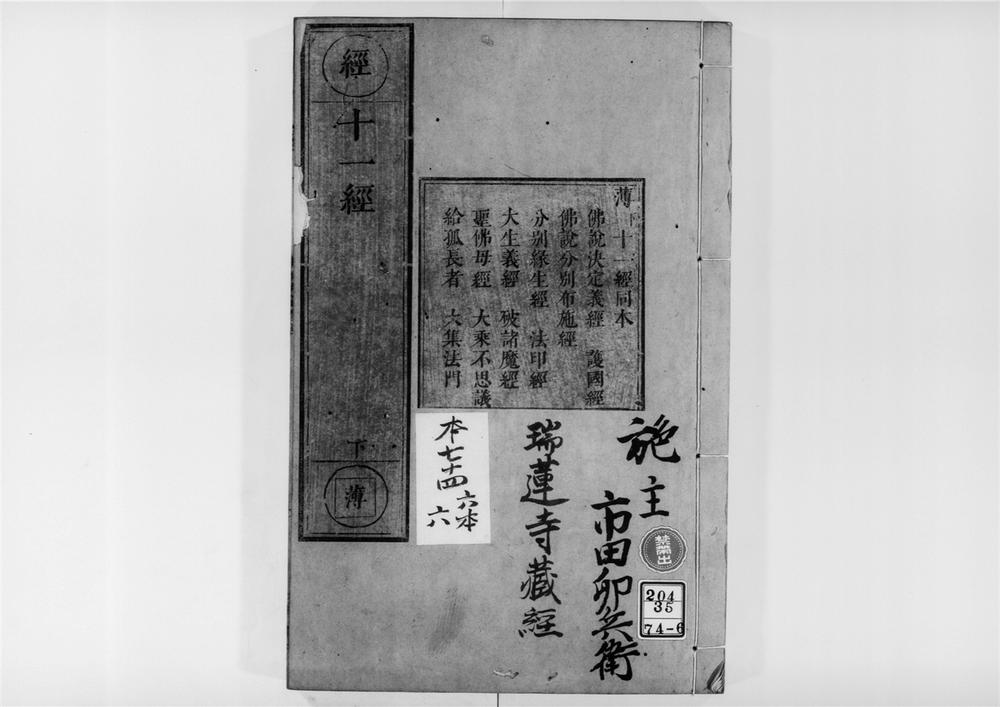 施主
市田卯兵衛
瑞蓮寺藏經
禁帶出
204
35
74-6
薄下十一經同本
佛說決定義經 護國經
佛說分別布施經
分別緣生經 法印經
大生義經 破諸魔經
聖佛母經 大乘不思議
給孤長者 六集法門
本七十四
六本
六
經
十一經
下
薄